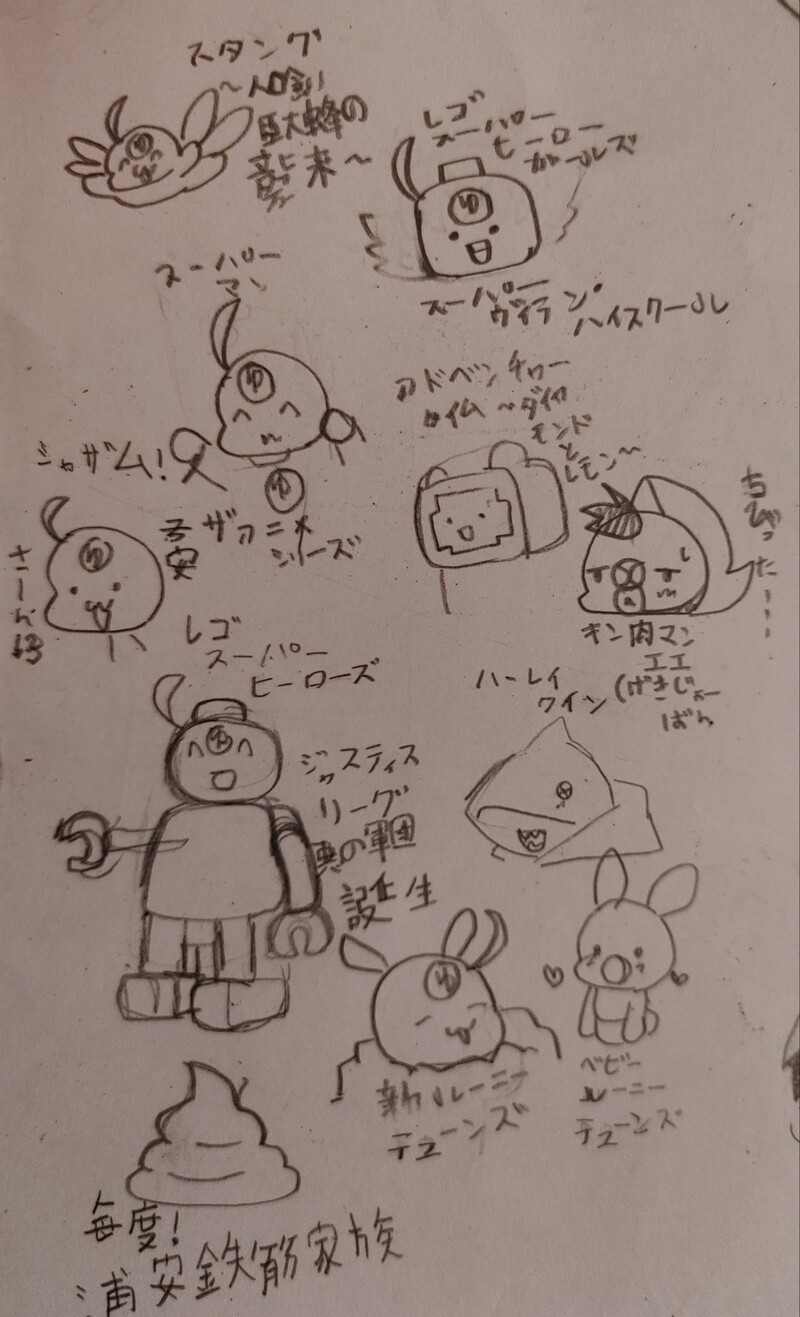 スタング
〜人喰い
巨大蜂の
襲来〜
レゴ
スーパー
ヒーロー
ガールズ
スーパー
ヴィラン・
ハイスクール
スーパー
マン
ゆ
ゆ
ゆ
シャザム!
アドベンチャー
タイム〜ダイヤ
モンド
と
レモン〜
ちびった…
子安
さーん
ゆ
ザアニメ
シリーズ
キン肉マン
(げきじょー
ばん
レゴ
スーパー
ヒーローズ
ハーレイ
クイン
ゆ
ジャスティス
リーグ
悪の軍団
誕生
ゆ
新ルーニー
テューンズ
ベビー
ルーニー
テューンズ
毎度!
浦安鉄筋家族